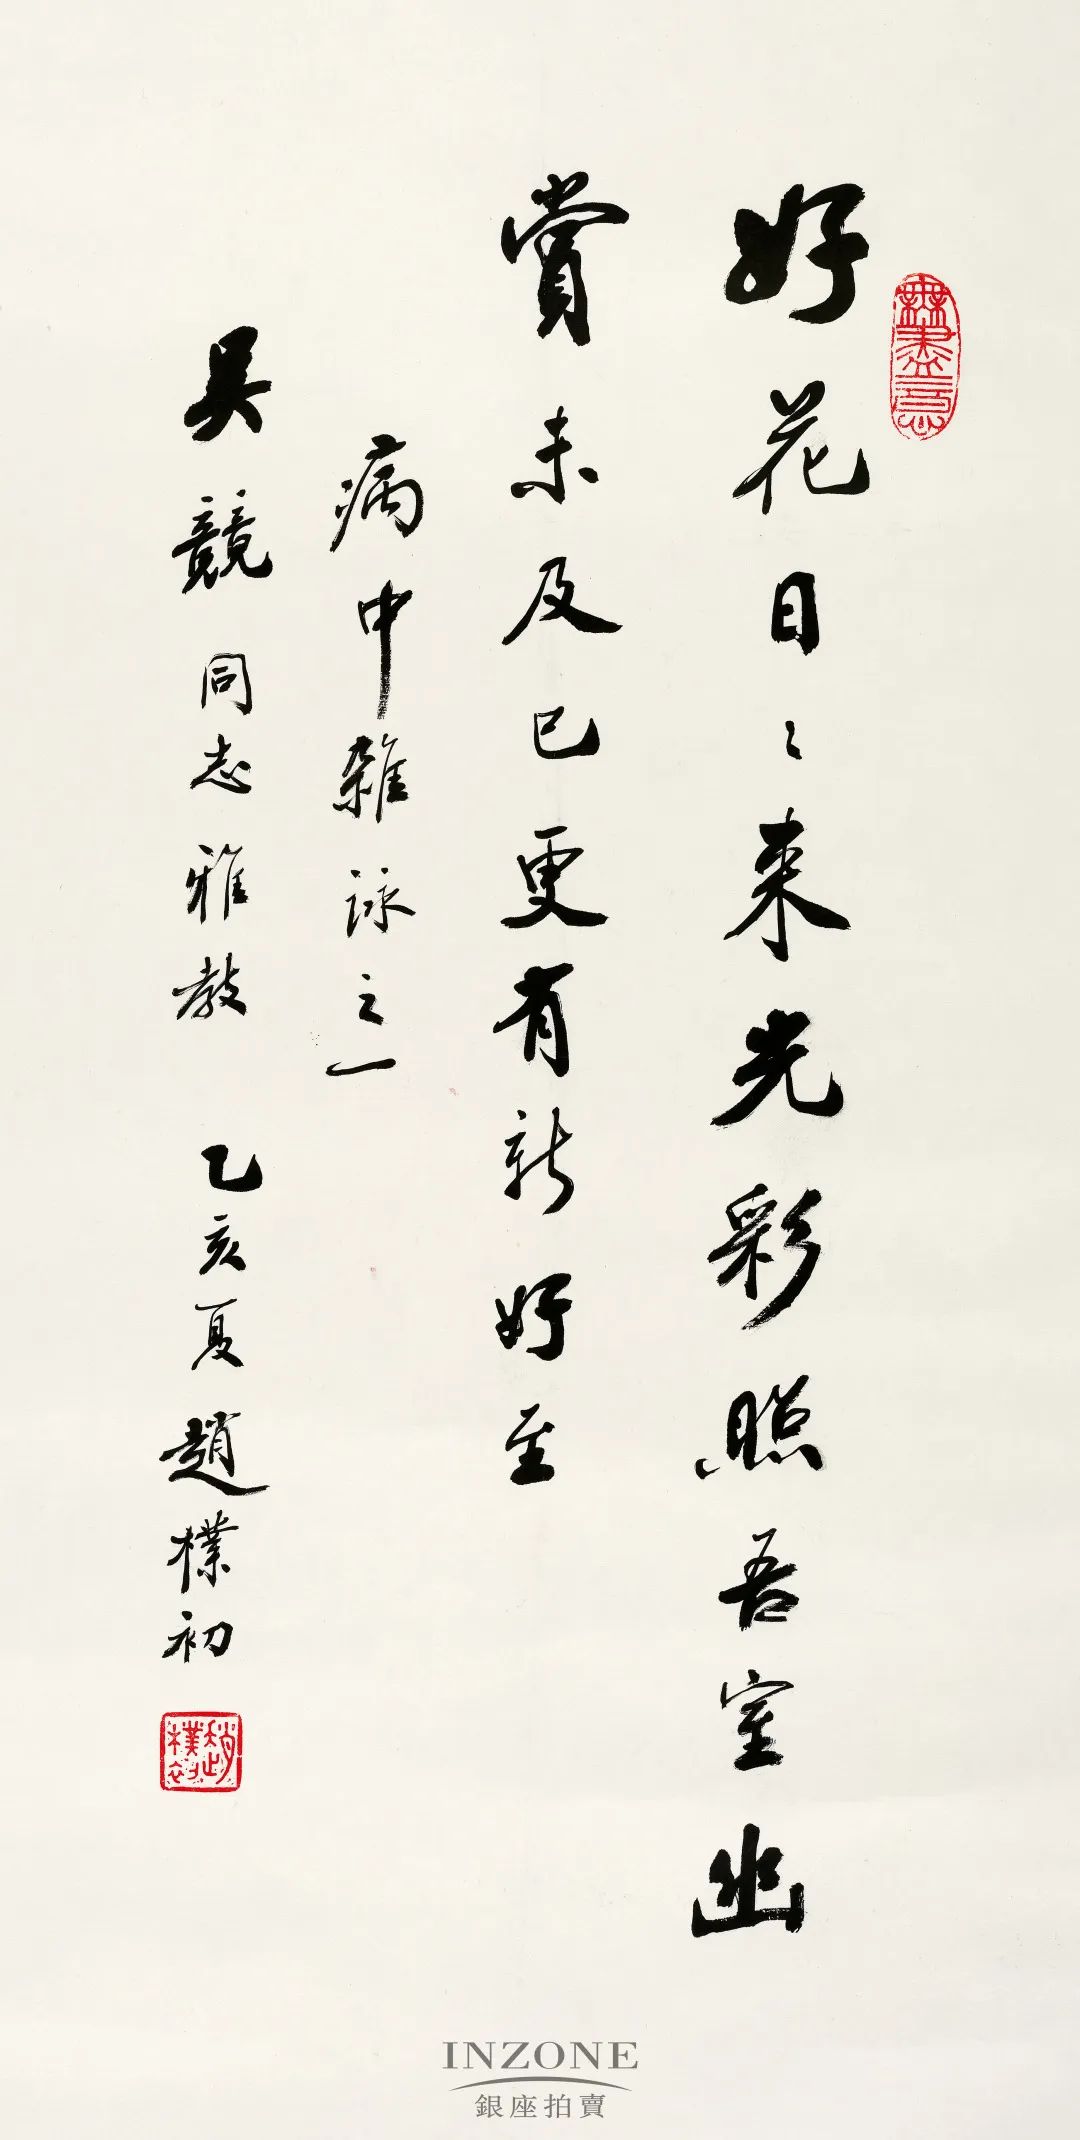 好花日〻来光彩照吾室幽
賞未及已更有新好至
病中雜詠之一
吴競同志雅教 乙亥夏趙樸初
無盡意
趙樸初
INZONE
銀座拍賣